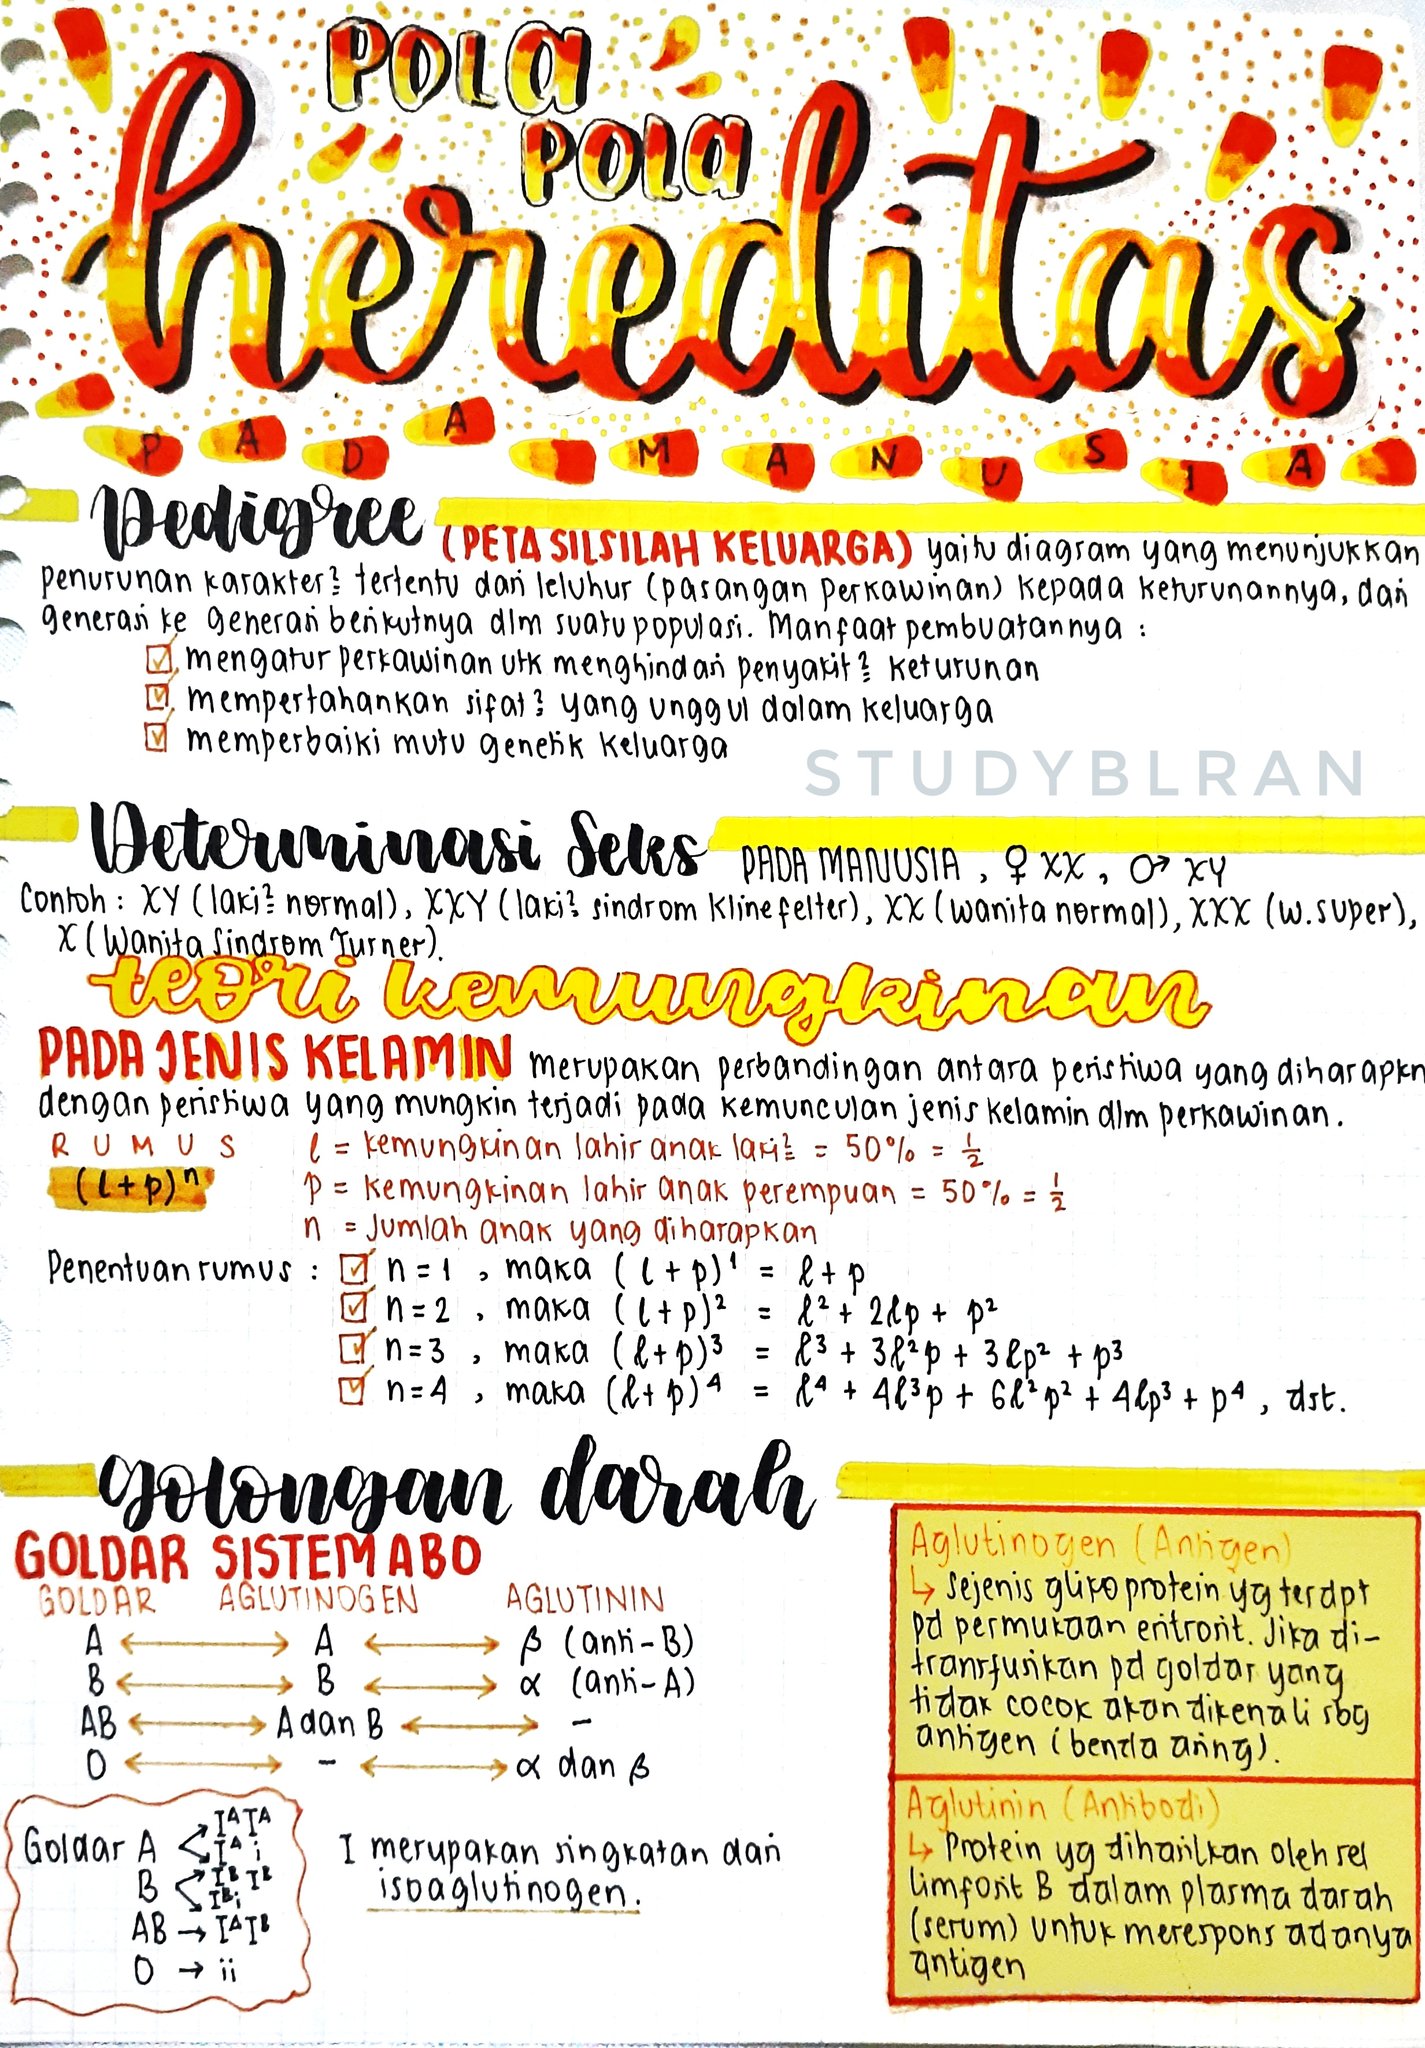 POLA
POLA
hereditas
PADA MANUSIA
Pedigree (PETA SILSILAH KELUARGA) yaitu diagram yang menunjukkan
penurunan karakter² tertentu dari leluhur (pasangan perkawinan) kepada keturunannya, dari
generasi ke generasi berikutnya dlm suatu populasi. Manfaat pembuatannya :
☑ mengatur perkawinan utk menghindari penyakit² keturunan
☑ mempertahankan sifat² yang unggul dalam keluarga
☑ memperbaiki mutu genetik keluarga
STUDYBLRAN
Determinasi Seks PADA MANUSIA , ♀ XX , ♂ XY
Contoh : XY (laki² normal), XXY (laki² sindrom Klinefelter), XX (wanita normal), XXX (w. super),
X (Wanita Sindrom Turner).
teori kemungkinan
PADA JENIS KELAMIN merupakan perbandingan antara peristiwa yang diharapkn
dengan peristiwa yang mungkin terjadi pada kemunculan jenis kelamin dlm perkawinan.
RUMUS
(l+p)ⁿ
l = kemungkinan lahir anak laki² = 50% = ½
p = kemungkinan lahir anak perempuan = 50% = ½
n = Jumlah anak yang diharapkan
Penentuan rumus : ☑ n=1 , maka (l+p)¹ = l+p
☑ n=2 , maka (l+p)² = l² + 2lp + p²
☑ n=3 , maka (l+p)³ = l³ + 3l²p + 3lp² + p³
☑ n=4 , maka (l+p)⁴ = l⁴ + 4l³p + 6l²p² + 4lp³ + p⁴ , dst.
golongan darah
GOLDAR SISTEM ABO
GOLDAR AGLUTINOGEN AGLUTININ
A ↔ A ↔ β (anti-B)
B ↔ B ↔ α (anti-A)
AB ↔ A dan B ↔ -
O ↔ - ↔ α dan β
Goldar A IᴬIᴬ
Iᴬi
B IᴮIᴮ
Iᴮi
AB → IᴬIᴮ
O → ii
I merupakan singkatan dari
isoaglutinogen.
Aglutinogen (Antigen)
↳ Sejenis glikoprotein yg terdpt
pd permukaan eritrosit. Jika di-
transfusikan pd goldar yang
tidak cocok akan dikenali sbg
antigen (benda asing).
Aglutinin (Antibodi)
↳ Protein yg dihasilkan oleh sel
limfosit B dalam plasma darah
(serum) untuk merespons adanya
antigen